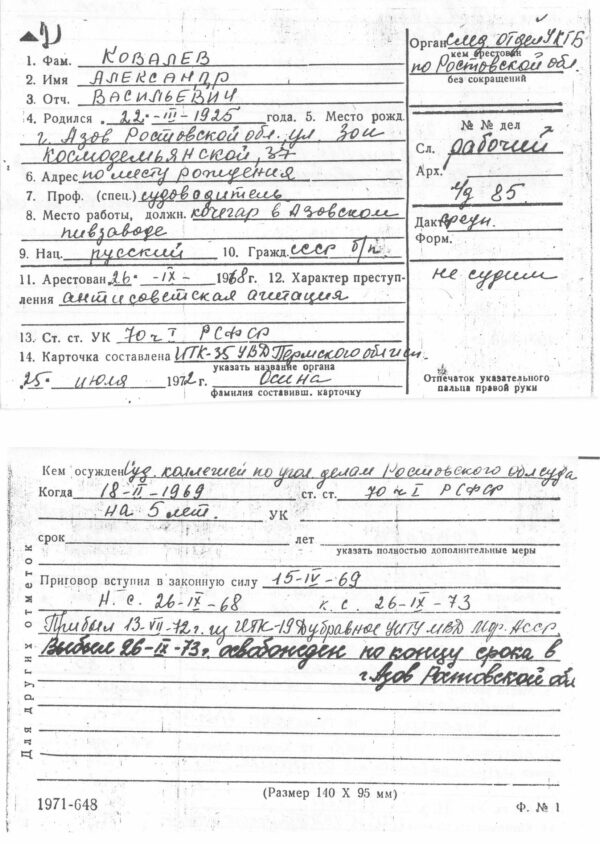 1. Фам. КОВАЛЕВ
2. Имя АЛЕКСАНДР
3. Отч. ВАСИЛЬЕВИЧ
4. Родился „22"-III-1925 года. 5. Место рожд.
г. Азов Ростовской обл. ул. Зои
Космодемьянской, 37
6. Адрес по месту рождения
7. Проф. (спец.) судоводитель
8. Место работы, должн. кочегар в Азовском
пивзаводе
9. Нац. русский 10. Гражд. СССР б/п
11. Арестован „26"-IX-1968 г. 12. Характер преступ-
ления антисоветская агитация
13. Ст. ст. УК 70 ч I РСФСР
14. Карточка составлена ИТК-35 УВД Пермского облисп.
указать название органа
„25" июля 1972 г. Осина
фамилия составивш. карточку
Орган след. отдел УКГБ
кем арестован
по Ростовской обл.
без сокращений
№ № дел
Сл. рабочий
Арх. 85
Дакт. средн.
Форм.
не судим
Отпечаток указательного
пальца правой руки
Кем осужден Суд. коллегией по угол. делам Ростовского облсуда
Когда 18-II-1969 ст. ст. 70 ч I РСФСР
на 5 лет. УК
срок лет
указать полностью дополнительные меры
Приговор вступил в законную силу 15-IV-69
Н. с. 26-IX-68 к. с. 26-IX-73
Прибыл 13-VII-72 г. из ИТК-19 Дубравное УИТУ МВД Мор. АССР.
Выбыл 26-IX-73 г. освобожден по концу срока в
г. Азов Ростовской обл
Для других отметок
(Размер 140 X 95 мм)
1971-648 Ф. № 1